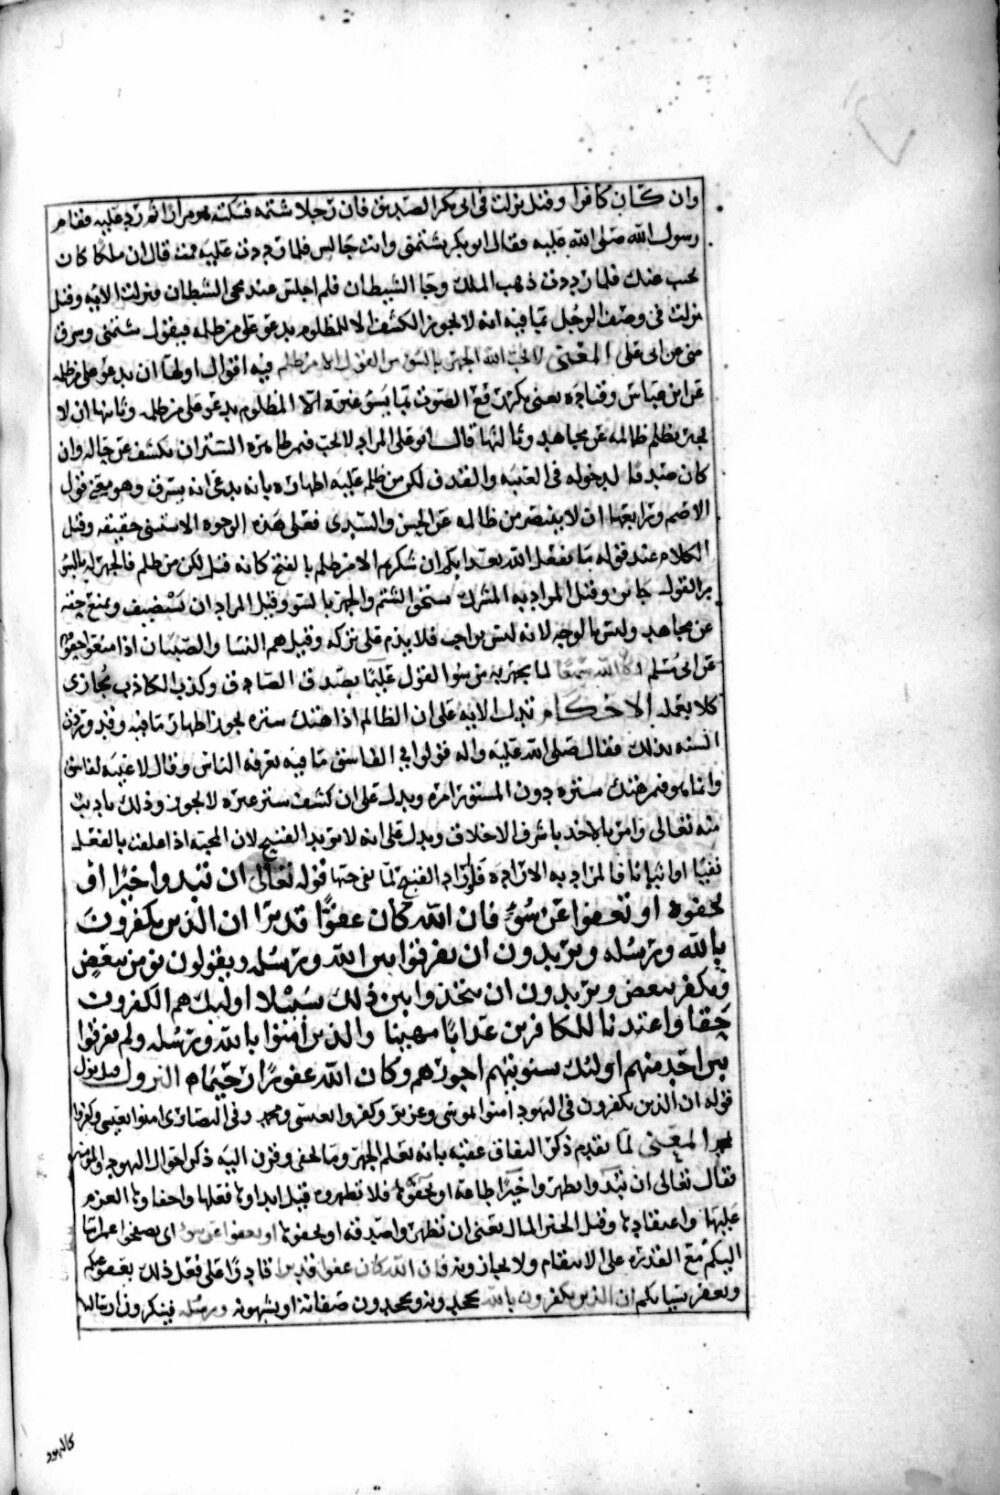 وان كان كافرا وقيل نزلت في ابي بكر الصديق فان رجلا شتمه فسكته مرارا ثم رد عليه فقام
رسول الله صلى الله عليه فقال ابو بكر شتمني وانت جالس فلما رددت عليه قمت قال ان ملكا كان
يجيب عنك فلما رددت ذهب الملك وجا الشيطان فلم اجلس عند مجي الشيطان فنزلت الايه وقيل
نزلت في وصف الرجل بما فيه انه لا يجوز الكشف الا للمظلوم يدعو على من ظلمه فيقول شتمني وسرق
مني من ابي علي المعنى لا يحب الله الجهر بالسوء من القول الا من ظلم فيه اقوال اولها ان يدعو على من ظلمه
عن ابن عباس وقتاده يعني يكره رفع الصوت بما يسوء غيره الا المظلوم يدعو على من ظلمه وثانيها ان لا
يجهر بظلم ظالمه عن مجاهد وثالثها قال ابو علي المراد لا يحب فيمن ظاهره الستر ان يكشف عن حاله وان
كان صدقا لدخوله في الغيبه والقذف لكن من ظلم عليه اظهاره بانه يدعي انه يسرق وهو معنى قول
الاصم ورابعها ان لا ينتصر من ظالمه عن الحسن والسدي فعلى هذه الوجوه الاستثنى حقيقه وقيل
الكلام عند قوله ما يفعل الله بعذابكم ان شكرتم الا من ظلم بالفتح كانه قيل لكن من ظلم فالجهر له بالسو
من القول جائز وقيل المراد به المشرك يستحق الشتم والجهر بالسو وقيل المراد ان يستضيف ويمنع حقه
عن مجاهد وليس بالوجه لانه ليس بواجب فلا يذم على تركه وقيل هم النسا والصبيان اذا منعوا حقوقا
عن ابي مسلم وكان الله سميعا لما يجهر به من سوا القول عليما بصدق الصادق وكذب الكاذب يجازي
كلا بفعله الاحكام تدل الايه على ان الظالم اذا هتك ستره يجوز اظهار ما فيه وقد وردت
السنه بذلك فقال صلى الله عليه واله قولوا في الفاسق ما فيه يعرفه الناس وقال لا غيبه لفاسق
وانما هو فيمن هتك ستره دون المستور امره ويدل على ان كشف ستر غيره لا يجوز وذلك تاديب
منه تعالى وامر بالاخذ باشرف الاخلاق ويدل على انه لا يريد القبيح لان المحبه اذا علقت بالفعل
نفيا او اثباتا فالمراد به الاراده فلو اراد القبيح لما نفى حبها قوله تعالى ان تبدوا خيرا او
تخفوه او تعفوا عن سوء فان الله كان عفوا قديرا ان الذين يكفرون
بالله ورسله ويريدون ان يفرقوا بين الله ورسله ويقولون نومن ببعض
ونكفر ببعض ويريدون ان يتخذوا بين ذلك سبيلا اوليك هم الكفرون
حقا واعتدنا للكافرين عذابا مهينا والذين امنوا بالله ورسله ولم يفرقوا
بين احد منهم اولئك سنوتيهم اجورهم وكان الله غفورا رحيما النزول قيل نزل
قوله ان الذين يكفرون في اليهود امنوا بموسى وعزير وكفروا بعيسى ومحمد وفي النصارى امنوا بعيسى وكفروا
بمحمد المعنى لما تقدم ذكر النفاق عقبه بانه يعلم الجهر وما يخفى وقرن اليه ذكر احوال اليهود والمومنين
فقال تعالى ان تبدوا تظهروا خيرا طاعة او تخفوه فلا تظهروه قيل ابداوها فعلها واخفاوها العزم
عليها واعتقادها وقيل الخير المال يعني ان تظهروا صدقه او تخفوها او تعفوا عن سوء اي تصفحوا عمن اسا
اليكم مع القدره على الانتقام ولا تجازوه فان الله كان عفوا قديرا قادرا على فعل ذلك يعفو عنكم
ويغفر سيئاتكم ان الذين يكفرون بالله يجحدونه ويجحدون صفاته او يشبهونه ورسله فينكرون رسالتها
كاليهود